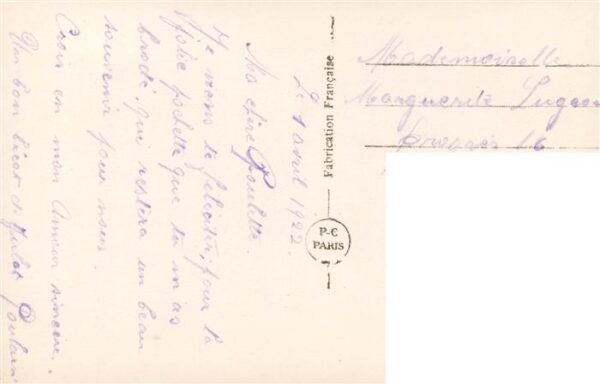 Le 1 avril 1922.
Ma chère Poulette.
Je viens te féliciter, pour ta
jolie pochette que tu m'as
brodé, qui restera un beau
souvenir pour nous.
Crois en mon Amour sincère.
Un bon baiser de Jules
Fabrication Française
P-C
PARIS
Mademoiselle
Marguerite
16